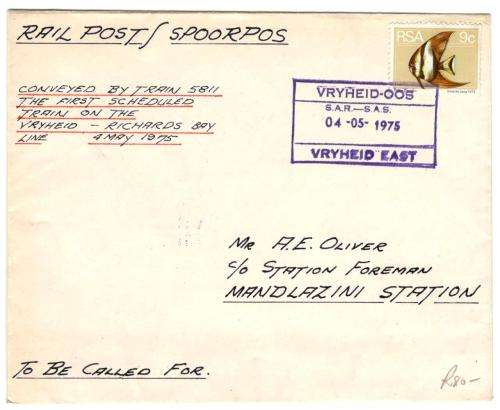 RAIL POST/ SPOORPOS
RSA 9c
CONVEYED BY TRAIN 5811
THE FIRST SCHEDULED
TRAIN ON THE
VRYHEID - RICHARDS BAY
LINE 4 MAY 1975
VRYHEID-OOS
S.A.R.—S.A.S.
04 -05- 1975
VRYHEID EAST
MR A.E. OLIVER
C/O STATION FOREMAN
MANDLAZINI STATION
TO BE CALLED FOR.
R80-